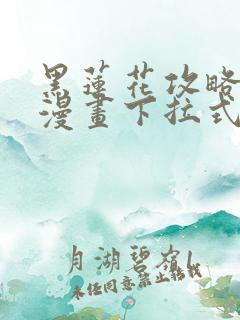 黑蓮花攻略
漫畫下拉式
月湖碧嶺
未经同意禁止转载